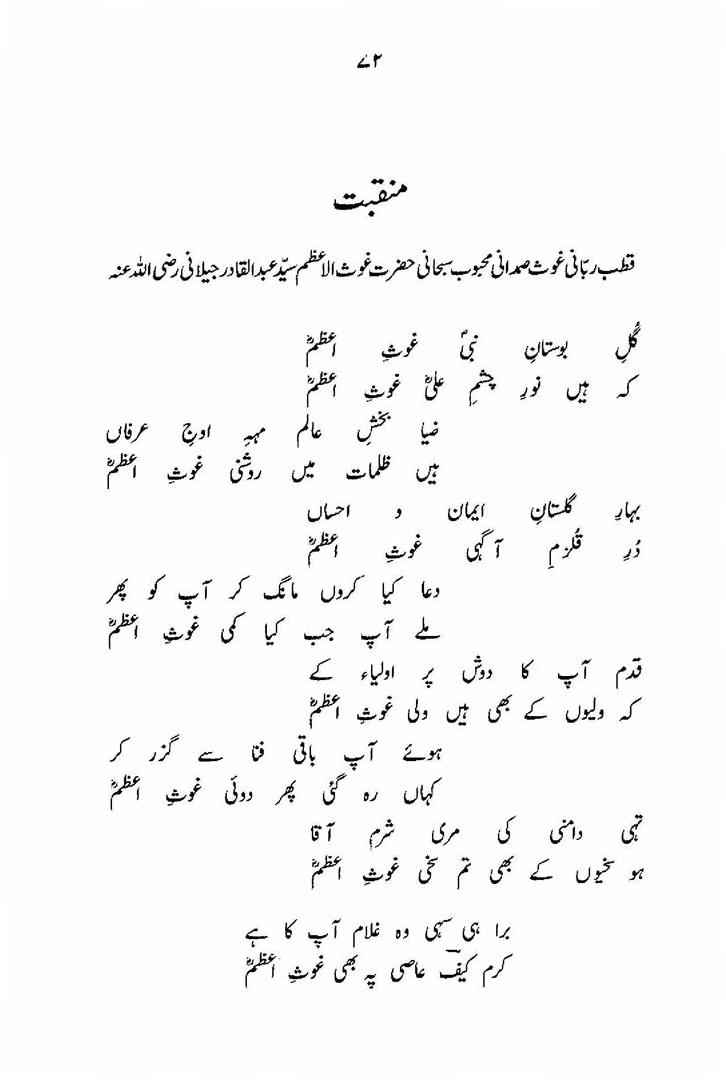 ۷۲
منقبت
قطب ربّانی غوث صمدانی محبوب سبحانی حضرت غوث الاعظم سیّد عبدالقادر جیلانی رضی اللہ عنہ
گُلِ بوستانِ نبیؐ غوثِ اعظمؓ
کہ ہیں نورِ چشمِ علیؓ غوثِ اعظمؓ
ضیا بخشِ عالم مہہِ اوجِ عرفاں
ہیں ظلمات میں روشنی غوثِ اعظمؓ
بہارِ گلستانِ ایمان و احساں
دُرِ قلزمِ آگہی غوثِ اعظمؓ
دعا کیا کروں مانگ کر آپ کو پھر
ملے آپ جب کیا کمی غوثِ اعظمؓ
قدم آپ کا دوش پر اولیاء کے
کہ ولیوں کے بھی ہیں ولی غوثِ اعظمؓ
ہوئے آپ باقی فنا سے گزر کر
کہاں رہ گئی پھر دوئی غوثِ اعظمؓ
تہی دامنی کی مری شرم آقا
ہو سخیوں کے بھی تم سخی غوثِ اعظمؓ
برا ہی سہی وہ غلام آپ کا ہے
کرم کیفؔ عاصی پہ بھی غوثِ اعظمؓ